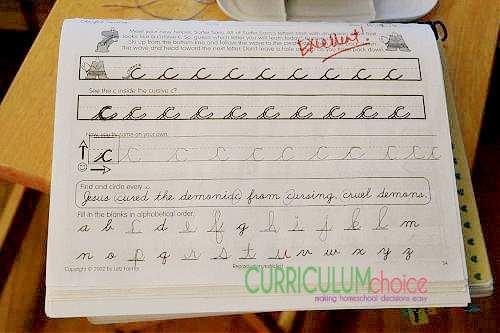 Meet your new helper, Surfer Sam. All of Surfer Sam's letters start with an
looks like a cursive c. So, guess which letter you will learn
Ski up from the bottom line and follow the wave to the
the wave and head toward the next letter. Don't leave a hole back down.
Excellent!
c c c c c c c c c
See the c inside the cursive c?
c c c c c c c c c
Now, you try some on your own.
c c c c c c c c c c c
Find and circle every c.
Jesus cured the demoniac from cursing, cruel demons.
Fill in the blanks in alphabetical order.
a b c d e f g h i j k l m
n o p q r s t u v w x y z
Copyright © 2002 by
Reproduction restricted
54
CURRICULUMchoice
making homeschool decisions easy